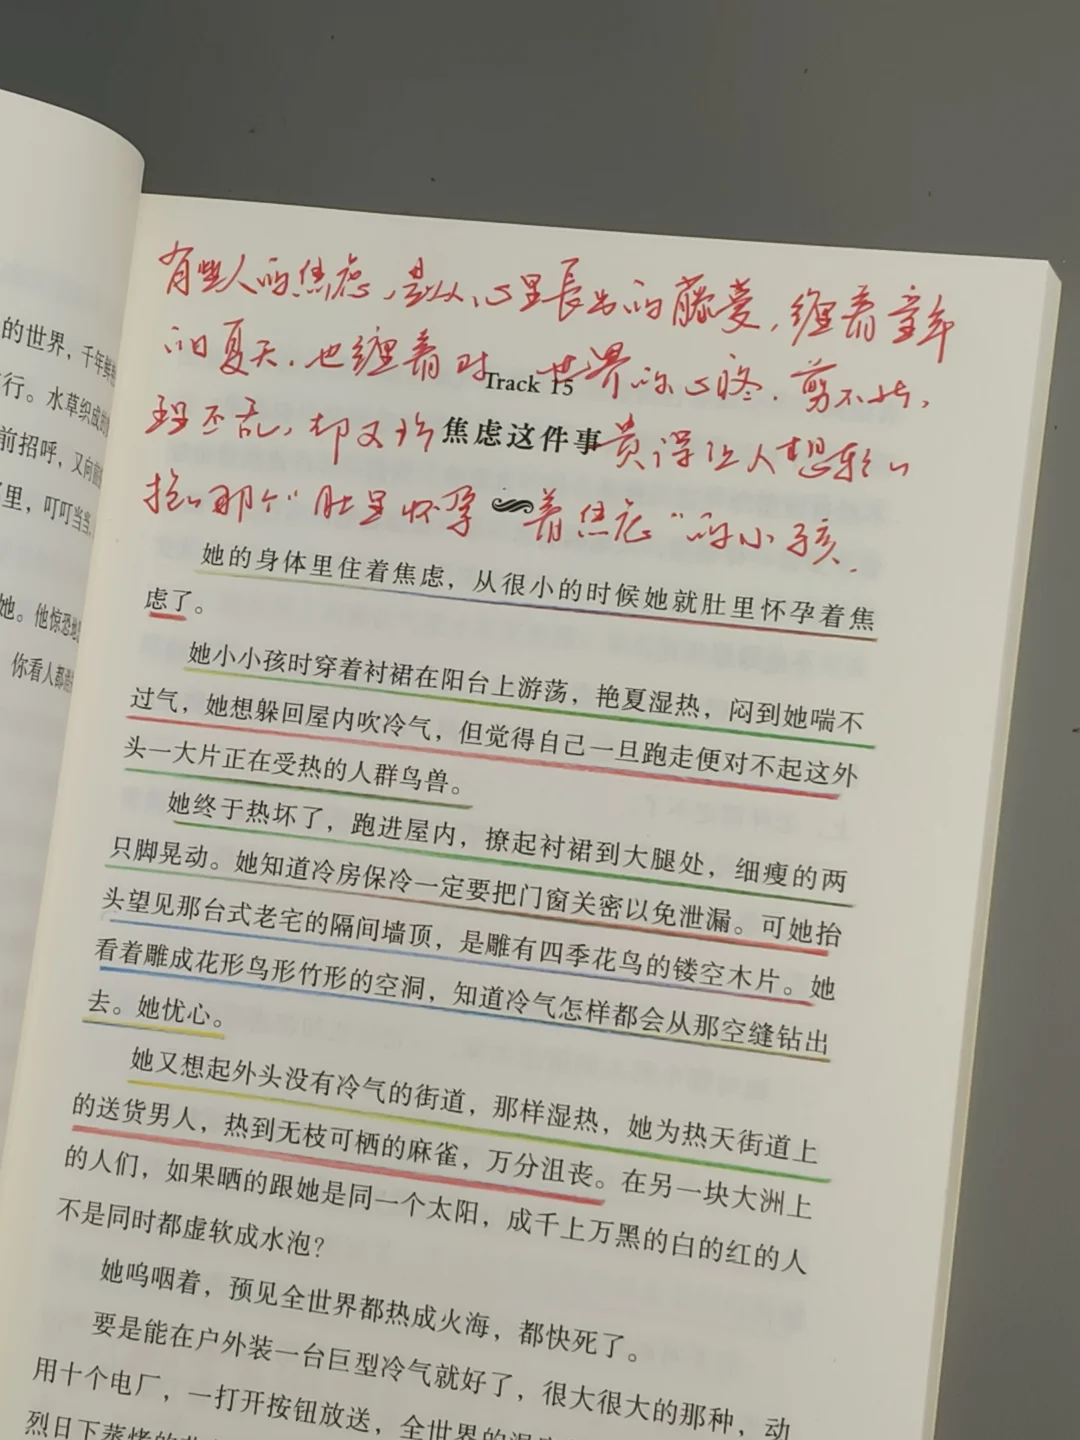 的世界，千年鲜
行。水草织成
前招呼，又向
里，叮叮当当
她。他惊恐地
你看人都
有些人的焦虑，是从心里長出的藤蔓，缠着童年
的夏天，也缠着对世界的心疼，剪不断，
理不乱，却又珍贵得让人想轻轻
抱抱那个“肚里怀孕着焦虑”的小孩.
Track 15
焦虑这件事
她的身体里住着焦虑，从很小的时候她就肚里怀孕着焦
虑了。
她小小孩时穿着衬裙在阳台上游荡，艳夏湿热，闷到她喘不
过气，她想躲回屋内吹冷气，但觉得自己一旦跑走便对不起这外
头一大片正在受热的人群鸟兽。
她终于热坏了，跑进屋内，撩起衬裙到大腿处，细瘦的两
只脚晃动。她知道冷房保冷一定要把门窗关密以免泄漏。可她抬
头望见那台式老宅的隔间墙顶，是雕有四季花鸟的镂空木片。她
看着雕成花形鸟形竹形的空洞，知道冷气怎样都会从那空缝钻出
去。她忧心。
她又想起外头没有冷气的街道，那样湿热，她为热天街道上
的送货男人，热到无枝可栖的麻雀，万分沮丧。在另一块大洲上
的人们，如果晒的跟她是同一个太阳，成千上万黑的白的红的人
不是同时都虚软成水泡？
她呜咽着，预见全世界都热成火海，都快死了。
要是能在户外装一台巨型冷气就好了，很大很大的那种，动
用十个电厂，一打开按钮放送，全世界的温
烈日下蒸烤的